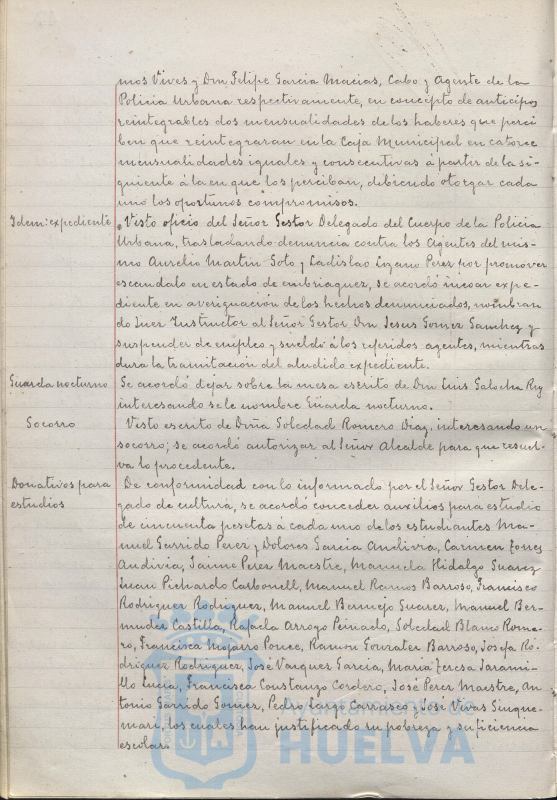 mos Vives y Don Felipe Garcia Macias, Cabo y Agente de la
Policia Urbana respectivamente, en concepto de anticipos
reintegrables dos mensualidades de los haberes que perci
ben que reintegraran en la Caja Municipal en catorce
mensualidades iguales y consecutivas á partir de la si-
guiente á la en que los perciban, debiendo otorgar cada
uno los oportunos compromisos.
Idem: expediente
Visto oficio del Señor Gestor Delegado del Cuerpo de la Policia
Urbana, trasladando denuncia contra los Agentes del mis-
mo Aurelio Martin Soto y Ladislao Lozano Perez por promover
escandalo en estado de embriaguez, se acordó incoar expe-
diente en averiguación de los hechos denunciados, nombran
do Juez Instructor al Señor Gestor Don Jesus Gomez Sanchez y
suspender de empleo y sueldo á los referidos agentes, mientras
dura la tramitación del aludido expediente.
Guarda nocturno
Se acordó dejar sobre la mesa escrito de Don Luis Galocha Rey
interesando se le nombre Guarda nocturno.
Socorro
Visto escrito de Doña Soledad Romero Diaz, interesando un
socorro; se acordó autorizar al Señor Alcalde para que resuel-
va lo procedente.
Donativos para
estudios
De conformidad con lo informado por el Señor Gestor Dele-
gado de cultura, se acordó conceder auxilios para estudio
de cincuenta pesetas á cada uno de los estudiantes Ma-
nuel Garrido Perez y Dolores Garcia Andivia, Carmen Jones
Andivia, Jaime Perez Maestre, Manuela Hidalgo Suarez
Juan Pichardo Carbonell, Manuel Ramos Barroso, Francisco
Rodriguez Rodriguez, Manuel Bermejo Suarez, Manuel Ber-
mudez Castilla, Rafaela Arroyo Peinado, Soledad Blanco Rome-
ro, Francisca Mojarro Ponce, Ramon Gonzalez Barroso, Josefa Ro-
driguez Rodriguez, José Vazquez Garcia, Maria Teresa Jarami-
llo Lucia, Francisca Constanzo Cordero, José Perez Maestre, An
tonio Garrido Gomez, Pedro Largo Carrasco y José Vivas
mari, los cuales han justificado su pobreza y suficiencia
escolar.
Ayuntamiento de
HUELVA